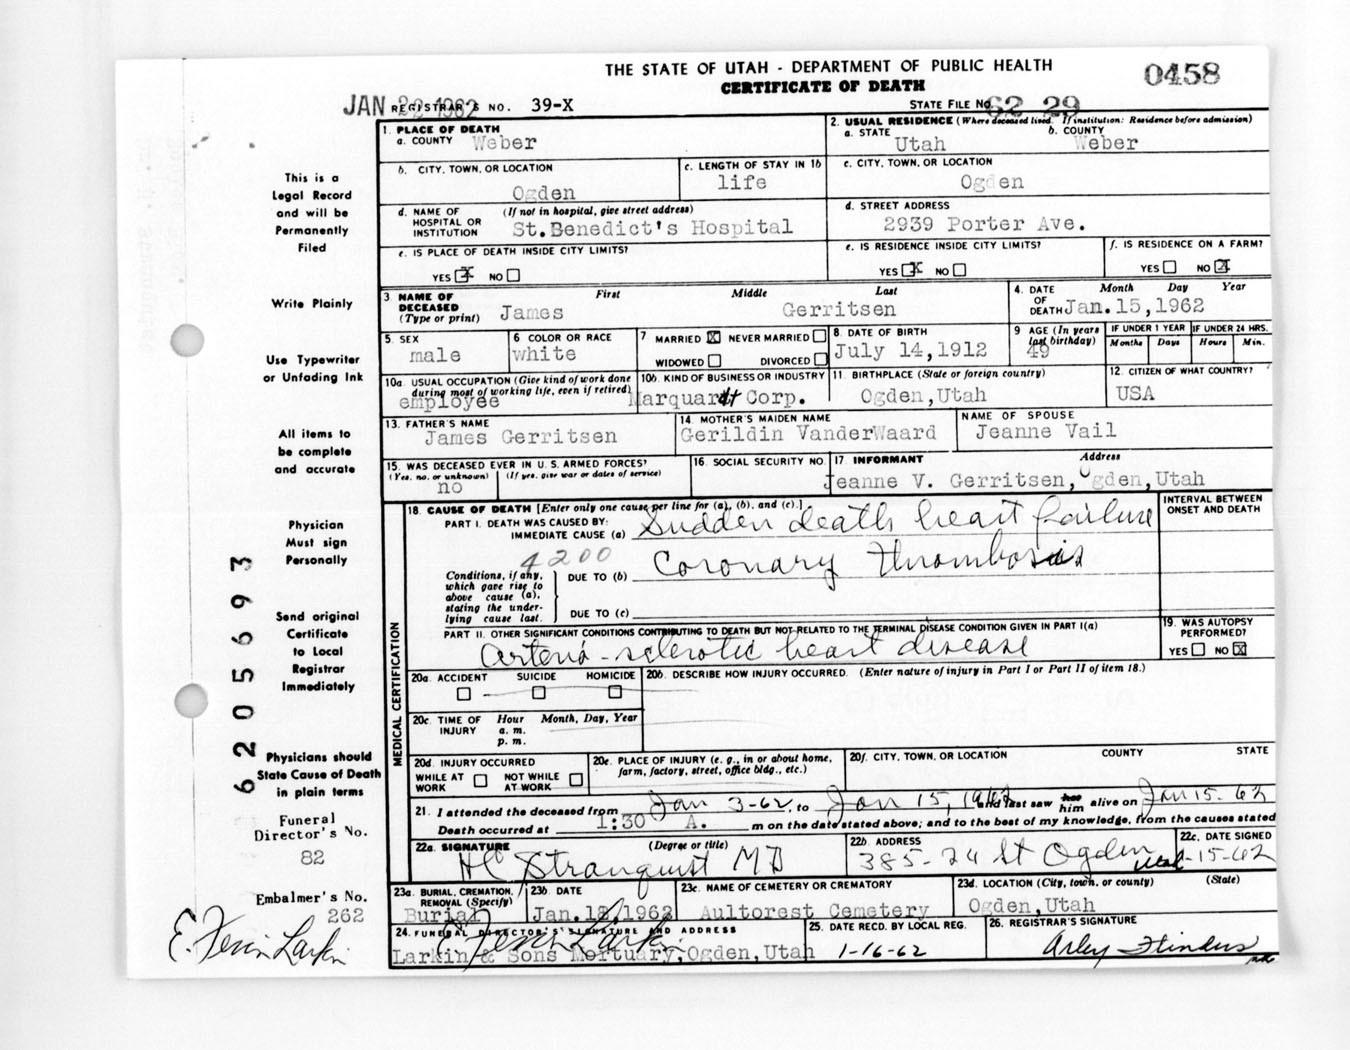 THE STATE OF UTAH - DEPARTMENT OF PUBLIC HEALTH
0458
CERTIFICATE OF DEATH
JAN 22 1962 REGISTRAR'S NO. 39-X
STATE FILE NO. 62 29
1. PLACE OF DEATH
a. COUNTY Weber
2. USUAL RESIDENCE (Where deceased lived. If institution: Residence before admission)
a. STATE Utah b. COUNTY Weber
b. CITY, TOWN, OR LOCATION Ogden
c. LENGTH OF STAY IN 1b life
c. CITY, TOWN, OR LOCATION Ogden
d. NAME OF HOSPITAL OR INSTITUTION (If not in hospital, give street address) St.Benedict's Hospital
d. STREET ADDRESS 2939 Porter Ave.
e. IS PLACE OF DEATH INSIDE CITY LIMITS?
YES X NO
e. IS RESIDENCE INSIDE CITY LIMITS?
YES X NO
f. IS RESIDENCE ON A FARM?
YES NO X
3. NAME OF DECEASED (Type or print) First Middle Last
James Gerritsen
4. DATE OF DEATH Month Day Year
Jan.15,1962
5. SEX male
6 COLOR OR RACE white
7 MARRIED X NEVER MARRIED
WIDOWED DIVORCED
8. DATE OF BIRTH July 14,1912
9 AGE (In years last birthday) 49
IF UNDER 1 YEAR Months Days
IF UNDER 24 HRS. Hours Min.
10a. USUAL OCCUPATION (Give kind of work done during most of working life, even if retired) employee
10b. KIND OF BUSINESS OR INDUSTRY Marquardt Corp.
11. BIRTHPLACE (State or foreign country) Ogden,Utah
12. CITIZEN OF WHAT COUNTRY? USA
13. FATHER'S NAME James Gerritsen
14. MOTHER'S MAIDEN NAME Gerildin VanderWaard
NAME OF SPOUSE Jeanne Vail
15. WAS DECEASED EVER IN U. S. ARMED FORCES?
(Yes, no, or unknown) (If yes, give war or dates of service)
no
16. SOCIAL SECURITY NO.
17. INFORMANT Address
Jeanne V. Gerritsen, Ogden,Utah
18. CAUSE OF DEATH [Enter only one cause per line for (a), (b), and (c).]
INTERVAL BETWEEN ONSET AND DEATH
PART I. DEATH WAS CAUSED BY:
IMMEDIATE CAUSE (a) Sudden death heart failure
4200
Conditions, if any, which gave rise to above cause (a), stating the underlying cause last.
DUE TO (b) Coronary Thrombosis
DUE TO (c)
PART II. OTHER SIGNIFICANT CONDITIONS CONTRIBUTING TO DEATH BUT NOT RELATED TO THE TERMINAL DISEASE CONDITION GIVEN IN PART I(a)
Arterio-sclerotic heart disease
19. WAS AUTOPSY PERFORMED?
YES NO X
MEDICAL CERTIFICATION
20a. ACCIDENT SUICIDE HOMICIDE
20b. DESCRIBE HOW INJURY OCCURRED. (Enter nature of injury in Part I or Part II of item 18.)
20c. TIME OF INJURY Hour Month, Day, Year
a. m.
p. m.
20d. INJURY OCCURRED
WHILE AT WORK NOT WHILE AT WORK
20e. PLACE OF INJURY (e. g., in or about home, farm, factory, street, office bldg., etc.)
20f. CITY, TOWN, OR LOCATION COUNTY STATE
21. I attended the deceased from Jan 3-62, to Jan 15, 1962 and last saw her him alive on Jan 15-62
Death occurred at 1:30 A. m on the date stated above; and to the best of my knowledge, from the causes stated
22a. SIGNATURE (Degree or title)
HC Stranquist MD
22b. ADDRESS 385-24 St Ogden Utah
22c. DATE SIGNED 1-15-62
23a. BURIAL, CREMATION, REMOVAL (Specify) Burial
23b. DATE Jan.18,1962
23c. NAME OF CEMETERY OR CREMATORY Aultorest Cemetery
23d. LOCATION (City, town, or county) (State)
Ogden,Utah
24. FUNERAL DIRECTOR'S SIGNATURE AND ADDRESS
E. Fenin Larkin
Larkin & Sons Mortuary,Ogden,Utah
25. DATE RECD. BY LOCAL REG. 1-16-62
26. REGISTRAR'S SIGNATURE
Arley Flinders
This is a
Legal Record
and will be
Permanently
Filed
Write Plainly
Use Typewriter
or Unfading Ink
All items to
be complete
and accurate
Physician
Must sign
Personally
Send original
Certificate
to Local
Registrar
Immediately
Physicians should
State Cause of Death
in plain terms
Funeral
Director's No.
82
Embalmer's No.
262
E. Fenin Larkin
6205693